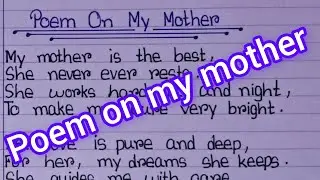 Poem On My Mother
My mother is the best,
She never ever rests
She works hard and night,
To make my future very bright.
is pure and deep,
For her, my dreams she keeps.
She guides me with care
Poem on my mother